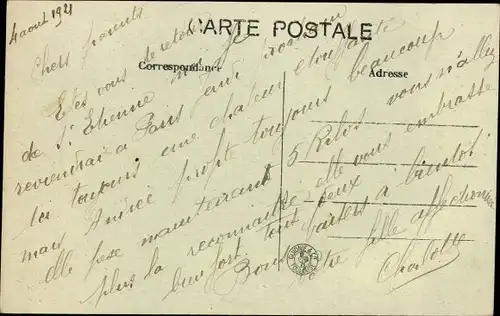 4 aout 1921
CARTE POSTALE
Correspondance
Adresse
Chers parents
Etes vous de retour
de St Etienne
reviendrai a Paris jeudi
ici toujours une chaleur etouffante
mais Andrée profite toujours beaucoup
elle pese maintenant 5 Kilos vous n'allez
plus la reconnaitre elle vous embrasse
bien fort tout deux
Bons baisers a bientot
Votre fille affectionnée
Charlotte